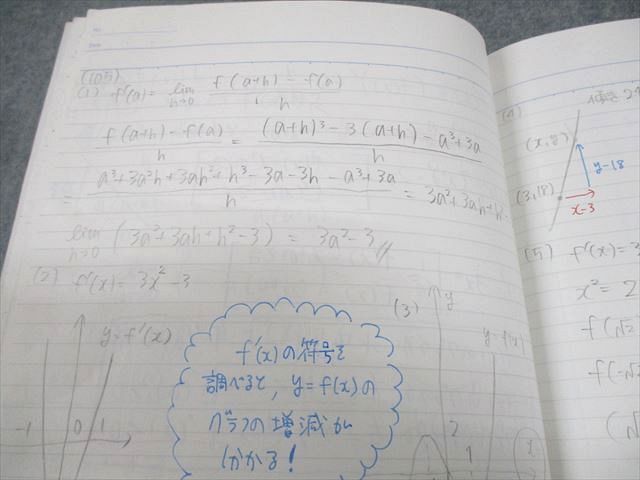 (105)
(1) f'(a) = lim h→0 f(a+h) - f(a) / h
f(a+h) - f(a) / h = (a+h)³ - 3(a+h) - a³ + 3a / h
= a³ + 3a²h + 3ah² + h³ - 3a - 3h - a³ + 3a / h = 3a² + 3ah + h
lim h→0 (3a² + 3ah + h² - 3) = 3a² - 3 //
(2) f'(x) = 3x² - 3
y = f'(x)
-1 0 1
f'(x)の符号を
調べると, y = f(x)の
グラフの増減が
わかる!
(3)
y
y = f(x)
2
1
x
(4)
(x, y)
(3, 18)
y-18
x-3
(5) f'(x) =
x² = 2
f(√2
f(-√2